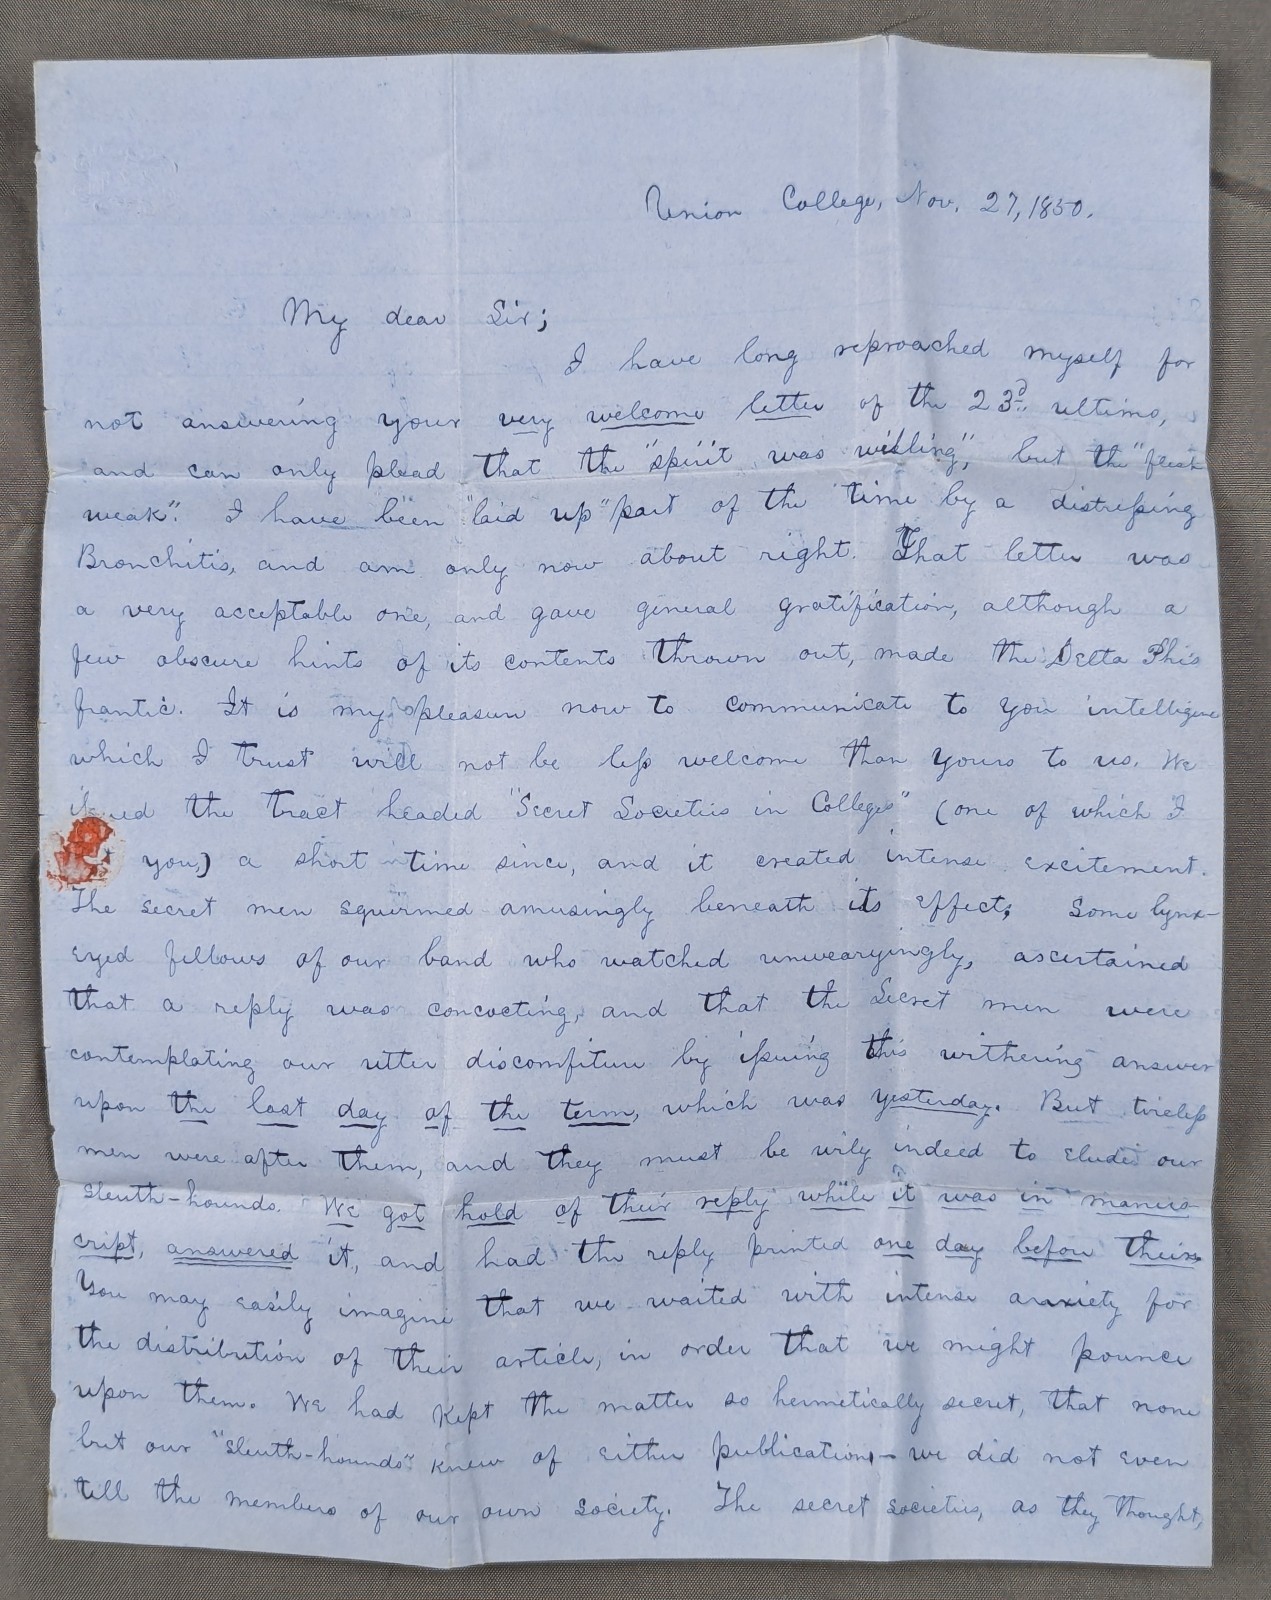 Union College, Nov. 27, 1850.
My dear Sir;
I have long reproached myself for
not answering your very welcome letter of the 23d. ultimo,
and can only plead that the "spirit was willing", but the "flesh
weak". I have been "laid up" part of the time by a distressing
Bronchitis, and am only now about right. That letter was
a very acceptable one, and gave general gratification, although a
few obscure hints of its contents thrown out, made the Delta Phis
frantic. It is my pleasure now to communicate to you intelligence
which I trust will not be less welcome than yours to us. We
issued the tract headed "Secret Societies in Colleges" (one of which I
you,) a short time since, and it created intense excitement.
The secret men squirmed amusingly beneath its effects; Some lynx-
eyed fellows of our band who watched unwearyingly, ascertained
that a reply was concocting, and that the Secret men were
contemplating our utter discomfiture by issuing this withering answer
upon the last day of the term, which was yesterday. But tireless
men were after them, and they must be wily indeed to elude our
sleuth-hounds. We got hold of their reply while it was in manus-
cript, answered it, and had the reply printed one day before theirs.
You may easily imagine that we waited with intense anxiety for
the distribution of their article, in order that we might pounce
upon them. We had kept the matter so hermetically secret, that none
but our "sleuth-hounds" knew of either publication,— we did not even
tell the members of our own society. The secret societies, as they thought,